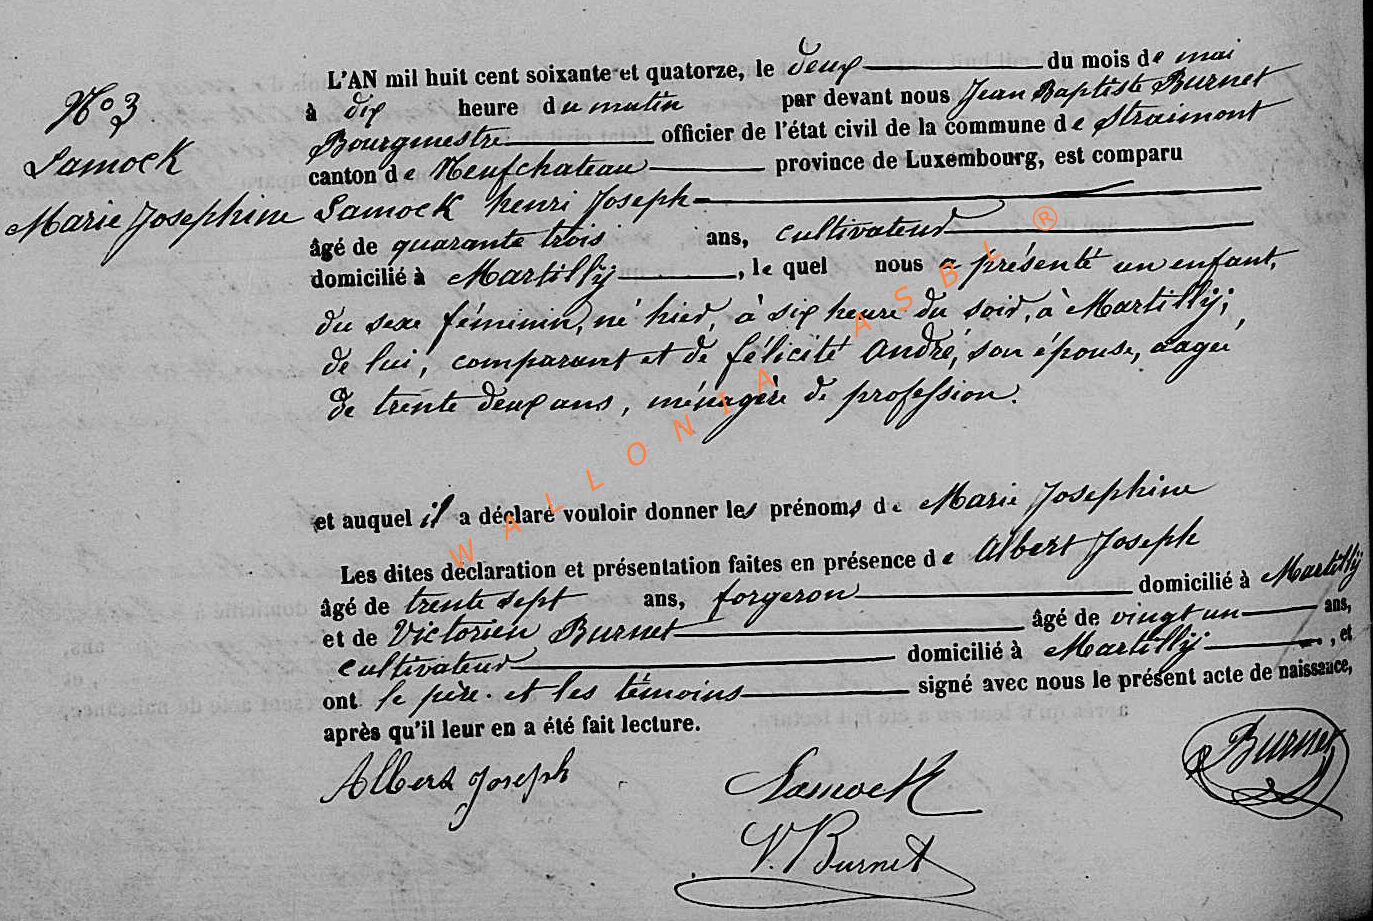 N° 3
Lamock
Marie Josephine
L'AN mil huit cent soixante et quatorze, le deux du mois de mai
à dix heure du matin par devant nous Jean Baptiste Burnet
Bourgmestre officier de l'état civil de la commune de Straimont
canton de Neufchateau province de Luxembourg, est comparu
Lamock henri Joseph
âgé de quarante trois ans, cultivateur
domicilié à Martilly, le quel nous a présenté un enfant,
du sexe féminin, né hier, à six heure du soir, à Martilly;
de lui, comparant et de félicité André, son épouse, aagée
de trente deux ans, ménagère de profession.
et auquel il a déclaré vouloir donner les prénoms de Marie Josephine
Les dites déclaration et présentation faites en présence de Albert Joseph
âgé de trente sept ans, forgeron domicilié à Martilly
et de Victorien Burnet âgé de vingt un ans,
cultivateur domicilié à Martilly, et
ont le père et les témoins signé avec nous le présent acte de naissance,
après qu'il leur en a été fait lecture.
Albert Joseph Lamock Burnet
V. Burnet
WALLONIA ASBL ®